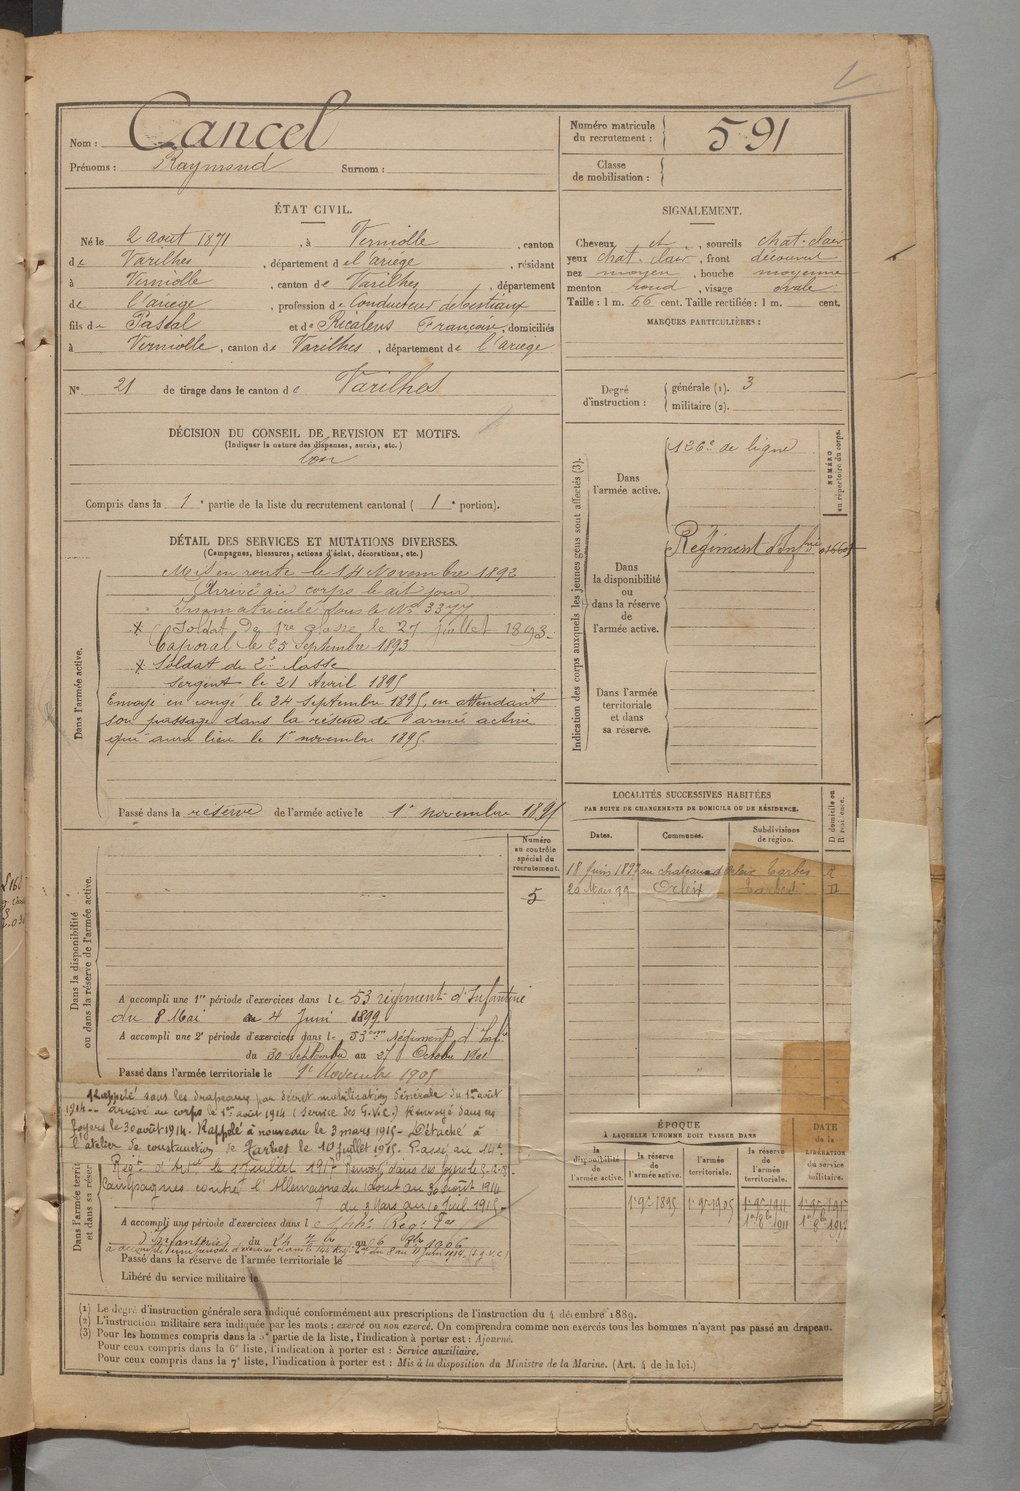 Nom : Cancel
Prénoms : Raymond Surnom :
Numéro matricule du recrutement : 591
Classe de mobilisation :
ÉTAT CIVIL.
Né le 2 août 1871, à Verniolle, canton
de Varilhes, département de l'ariège, résidant
à Verniolle, canton de Varilhes, département
de l'ariège, profession de Conducteur de bestiaux
fils de Pascal et de Ricalens Françoise, domiciliés
à Verniolle, canton de Varilhes, département de l'ariège
N° 21 de tirage dans le canton de Varilhes
SIGNALEMENT.
Cheveux et, sourcils chat. clair
yeux chat. clair, front découvert
nez moyen, bouche moyenne
menton rond, visage ovale
Taille : 1 m. 66 cent. Taille rectifiée : 1 m. cent.
MARQUES PARTICULIÈRES :
Degré d'instruction : générale (1). 3
militaire (2).
DÉCISION DU CONSEIL DE REVISION ET MOTIFS.
(Indiquer la nature des dispenses, sursis, etc.)
bon
Compris dans la 1e partie de la liste du recrutement cantonal (1e portion).
Indication des corps auxquels les jeunes gens sont affectés (3).
NUMÉRO au répertoire du corps.
Dans l'armée active.
126e de ligne
Dans la disponibilité ou dans la réserve de l'armée active.
Régiment d'Infrie
Dans l'armée territoriale et dans sa réserve.
DÉTAIL DES SERVICES ET MUTATIONS DIVERSES.
(Campagnes, blessures, actions d'éclat, décorations, etc.)
Dans l'armée active.
Mis en route le 14 Novembre 1892
Arrivé au corps le dit jour
Immatriculé sous le No 3377
* Soldat de 1re classe le 27 juillet 1893.
Caporal le 25 septembre 1893
* Soldat de 2e classe
Sergent le 21 Avril 1895
Envoyé en congé le 24 septembre 1895, en attendant
son passage dans la réserve de l'armée active
qui aura lieu le 1er novembre 1895.
Passé dans la réserve de l'armée active le 1er novembre 1895
Numéro au contrôle spécial du recrutement.
5
LOCALITÉS SUCCESSIVES HABITÉES
PAR SUITE DE CHANGEMENTS DE DOMICILE OU DE RÉSIDENCE.
Dates. Communes. Subdivisions de région. D domicile ou R résidence.
18 Juin 1897 au chateau d'Orleix Tarbes R
20 Mars 99 Orleix Tarbes D
Dans la disponibilité ou dans la réserve de l'armée active.
A accompli une 1re période d'exercices dans le 53 régiment d'Infanterie
du 8 Mai au 4 Juin 1899
A accompli une 2e période d'exercices dans le 53eme Régiment d'Infie
du 30 Septembre au 27 Octobre 1901
Passé dans l'armée territoriale le 1er Novembre 1905
Rappelé sous les drapeaux par décret mobilisation Générale du 1er août
1914 -- arrivé au corps le 1er août 1914 (Service des G.V.C.) Renvoyé dans ses
foyers le 30 août 1914. Rappelé à nouveau le 3 mars 1915 - Détaché à
l'atelier de construction de Tarbes le 10 juillet 1915. Passé au 14e
Régt d'Artie le 1er Juillet 1917
Campagnes contre l'Allemagne du 1 août au 30 août 1914
du 3 Mars au 10 Juil. 1915 -
Dans l'armée territ et dans sa réser
A accompli une période d'exercices dans le
d'Infanterie du 24 au 6 1906
Passé dans la réserve de l'armée territoriale le
Libéré du service militaire le
ÉPOQUE
À LAQUELLE L'HOMME DOIT PASSER DANS
la disponibilité de l'armée active. la réserve de l'armée active. l'armée territoriale. la réserve de l'armée territoriale. DATE de la LIBÉRATION du service militaire.
1er 9bre 1895 1er 9bre 1905 1er 9bre 1911
(1) Le degré d'instruction générale sera indiqué conformément aux prescriptions de l'instruction du 4 décembre 1889.
(2) L'instruction militaire sera indiquée par les mots : exercé ou non exercé. On comprendra comme non exercés tous les hommes n'ayant pas passé au drapeau.
(3) Pour les hommes compris dans la 5e partie de la liste, l'indication à porter est : Ajourné.
Pour ceux compris dans la 6e liste, l'indication à porter est : Service auxiliaire.
Pour ceux compris dans la 7e liste, l'indication à porter est : Mis à la disposition du Ministre de la Marine. (Art. 4 de la loi.)